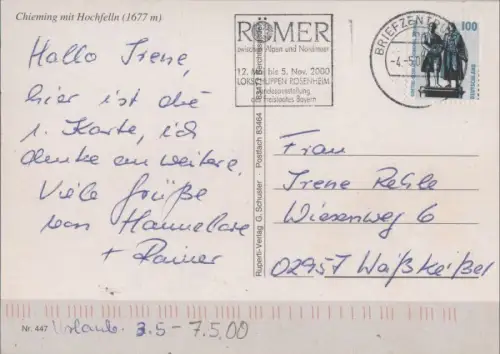 Chieming mit Hochfelln (1677 m)
Hallo Irene,
hier ist die
1. Karte, ich
denke an weitere.
Viele Grüße
von Hannelore
+ Rainer
RÖMER
zwischen Alpen und Nordmeer
12. Mai bis 5. Nov. 2000
LOKSCHUPPEN ROSENHEIM
Landesausstellung
des Freistaates Bayern
BRIEFZENTRUM
-4.-5.00
100
DEUTSCHLAND
Ruperti-Verlag G. Schuster · Postfach 83464
Frau
Irene Rehle
Wiesenweg 6
02957 Weißkeißel
Nr. 447
Urlaub. 3.5 - 7.5.00